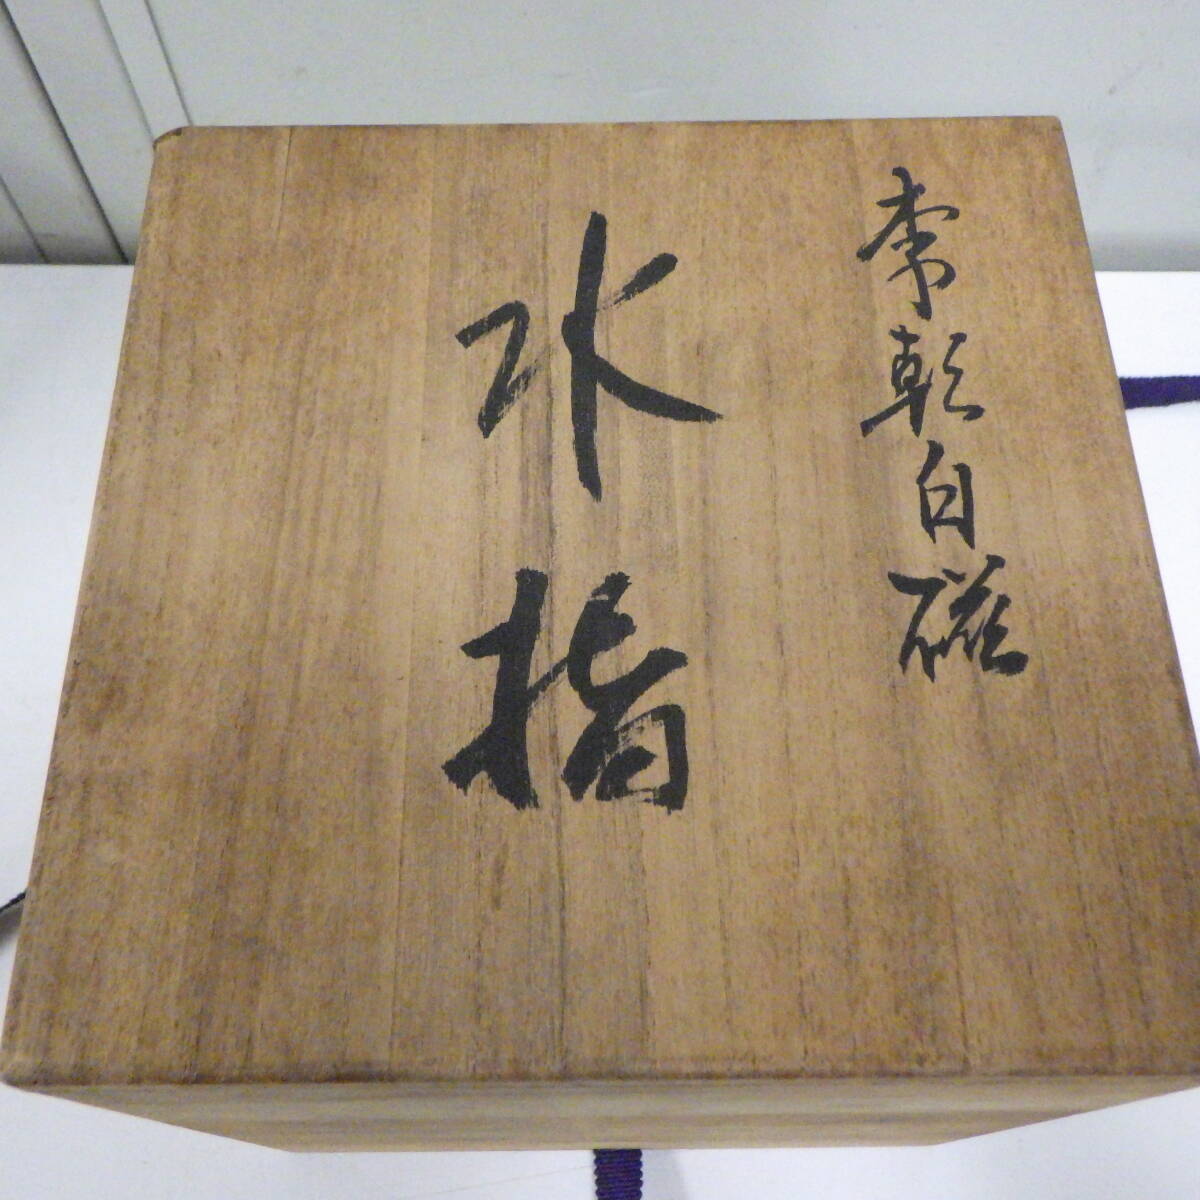 李朝白磁
水指